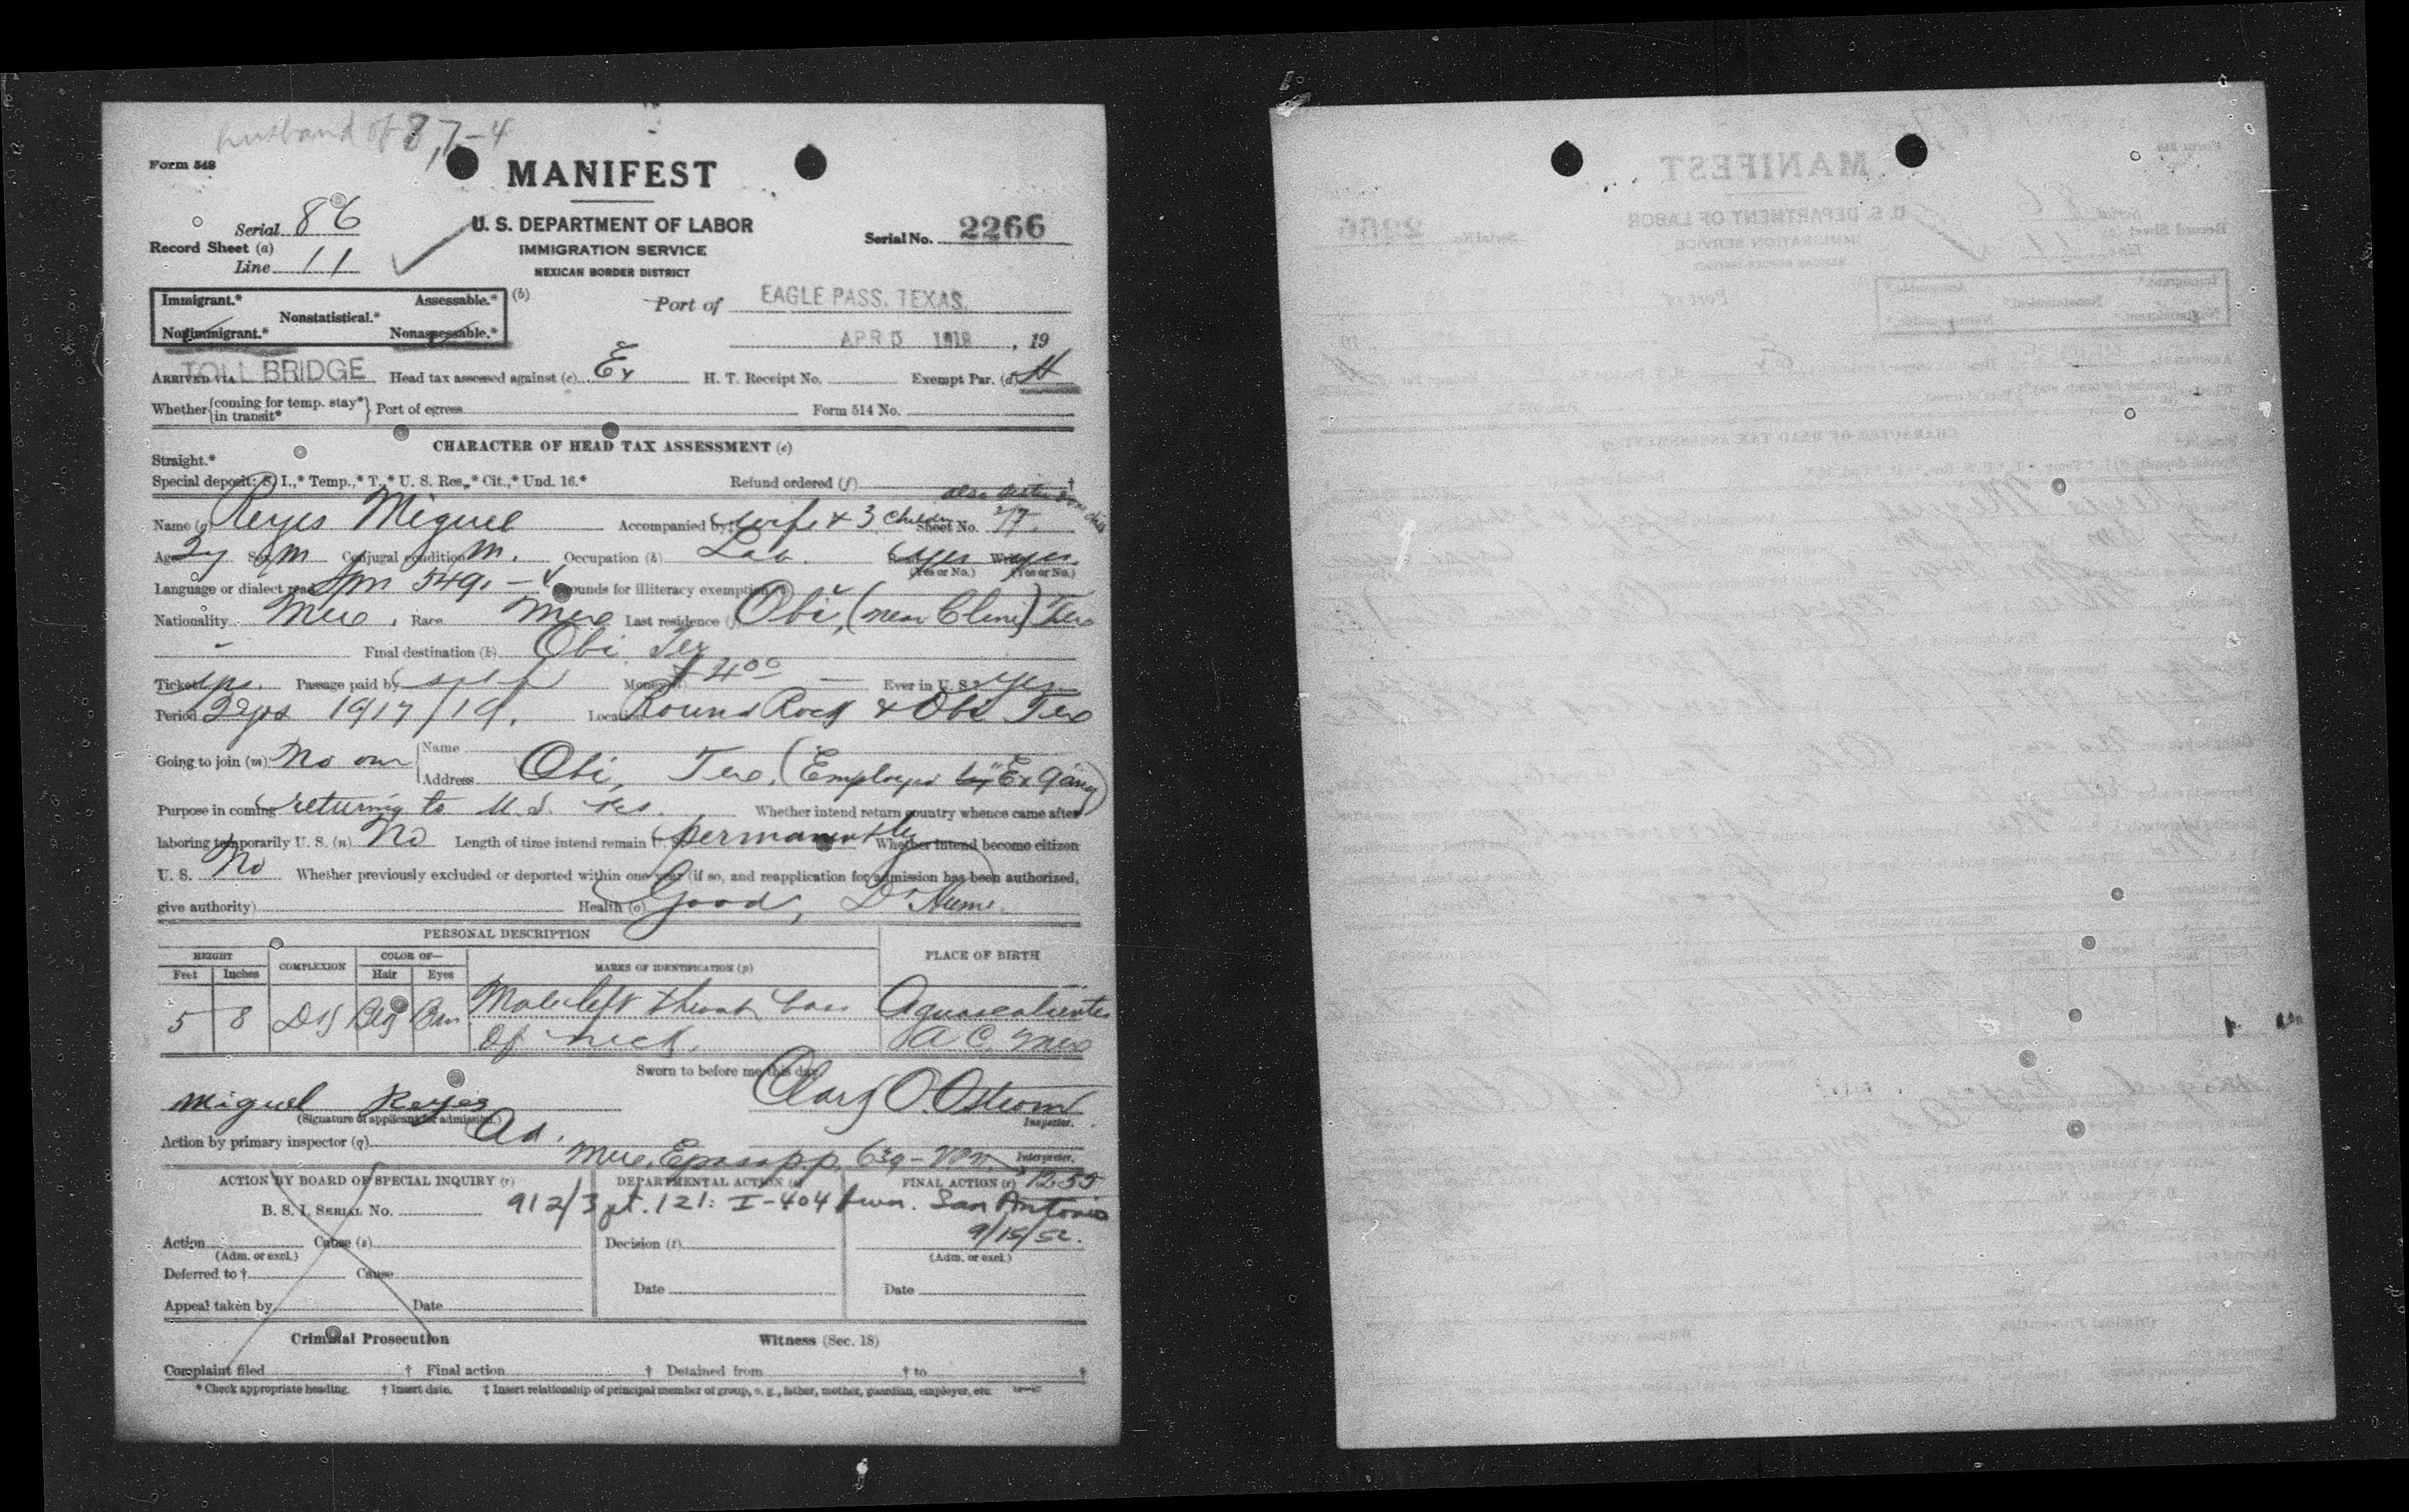 husband of 87-4
Form 548
MANIFEST
Serial 86
U. S. DEPARTMENT OF LABOR
Serial No. 2266
Record Sheet (a)
IMMIGRATION SERVICE
Line 11
MEXICAN BORDER DISTRICT
Immigrant.* Assessable.* (b)
Port of EAGLE PASS, TEXAS.
Nonstatistical.*
Nonimmigrant.* Nonassessable.*
APR 5 , 19
ARRIVED VIA TOLL BRIDGE Head tax assessed against (c) Ex H. T. Receipt No. Exempt Par. (d)
Whether {coming for temp. stay* in transit*} Port of egress Form 514 No.
CHARACTER OF HEAD TAX ASSESSMENT (e)
Straight.*
Special deposit: S. I.,* Temp.,* T.,* U. S. Res.,* Cit.,* Und. 16.* Refund ordered (f) †
Name (g) Reyes Miguel Accompanied by‡ wife & 3 children Sheet No. 2/7.
Age 27 Sex m Conjugal condition m. Occupation (h) Lab. Read yes Write yes.
(Yes or No.) (Yes or No.)
Language or dialect read Spn 549. Grounds for illiteracy exemption
Nationality Mex. Race Mex Last residence (j) Obi, (near Cline) Tex
Final destination (k) Obi Tex
Ticket yes. Passage paid by self Money $4.00 Ever in U. S. yes
Period 2 yrs 1917/19. Location Round Rock & Obi Tex
Going to join (m) No one {Name
Address Obi, Tex. (Employed by Ex Gang)
Purpose in coming returning to U.S. res. Whether intend return country whence came after
laboring temporarily U. S. (n) No Length of time intend remain U. S. permanently Whether intend become citizen
U. S. No Whether previously excluded or deported within one year (if so, and reapplication for admission has been authorized,
give authority) Health (o) Good, Dr Hume.
PERSONAL DESCRIPTION
PLACE OF BIRTH
HEIGHT COMPLEXION COLOR OF— MARKS OF IDENTIFICATION (p)
Feet Inches Hair Eyes
5 8 Dk Blk Brn Mole left throat base Aguascalientes
of neck. A.C. Mex
Sworn to before me this day
Miguel Reyes
(Signature of applicant for admission.)
Inspector.
Action by primary inspector (q) Ad.
Interpreter.
ACTION BY BOARD OF SPECIAL INQUIRY (r) DEPARTMENTAL ACTION (s) FINAL ACTION (r)
B. S. I. SERIAL No. 912/3 pt. 121: I-404 San Antonio
9/15/52.
Action Cause (s) Decision (t)
(Adm. or excl.) (Adm. or excl.)
Deferred to † Cause
Date Date
Appeal taken by Date
Criminal Prosecution Witness (Sec. 18)
Complaint filed † Final action † Detained from † to †
* Check appropriate heading. † Insert date. ‡ Insert relationship of principal member of group, e. g., father, mother, guardian, employer, etc.